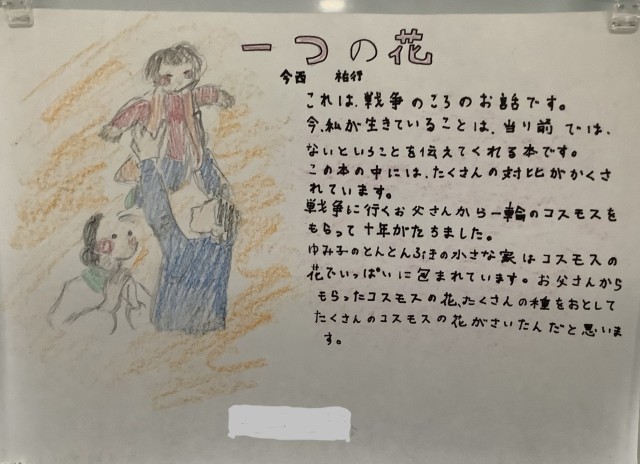 一つの花
今西 祐行
これは、戦争のころのお話です。
今、私が生きていることは、当り前では、
ないということを伝えてくれる本です。
この本の中には、たくさんの対比がかくさ
れています。
戦争に行くお父さんから一輪のコスモスを
もらって十年がたちました。
ゆみ子のとんとんぶきの小さな家はコスモスの
花でいっぱいに包まれています。お父さんから
もらったコスモスの花、たくさんの種をおとして
たくさんのコスモスの花がさいたんだと思いま
す。